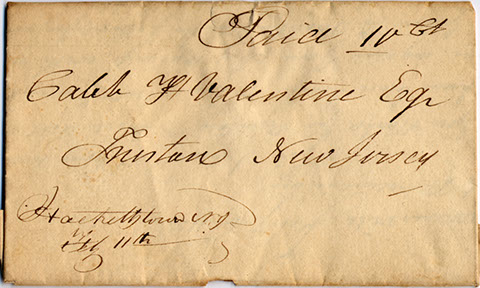 Paid 10 Ct
Caleb H Valentine Eqr
Trenton New Jersey
Hackettstown NJ
Feb 11th